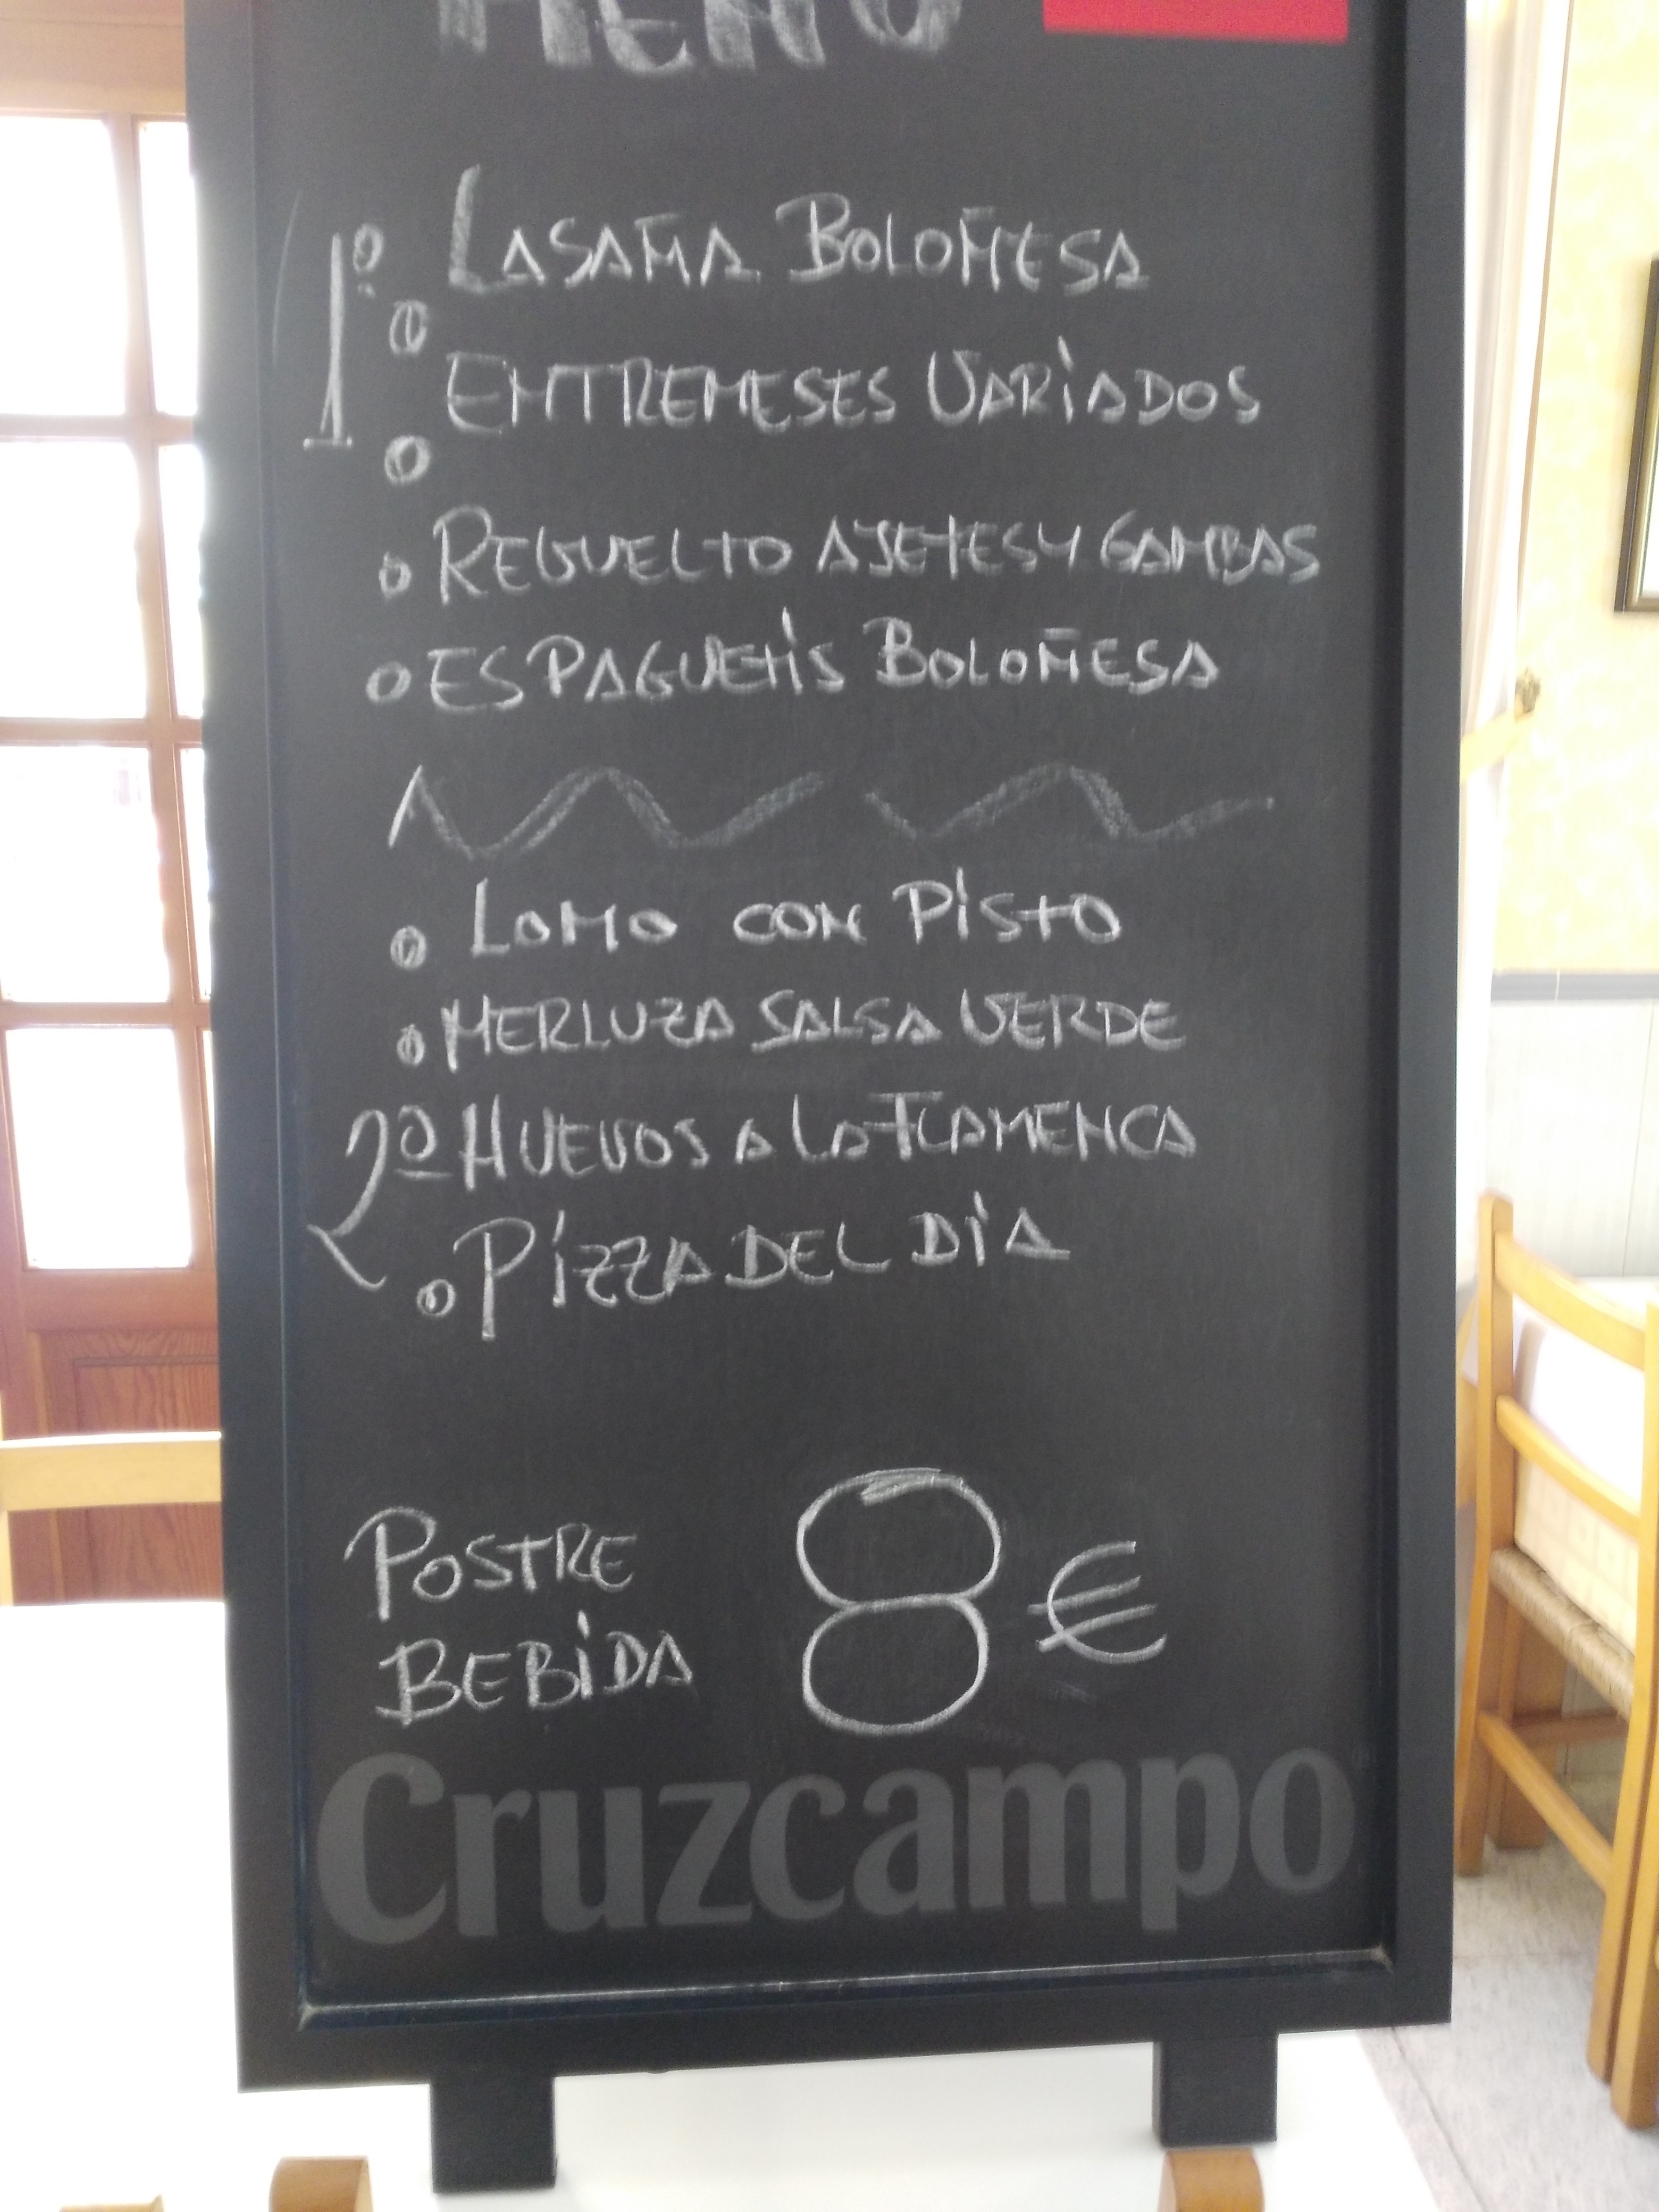 MENÚ
1º LASAÑA BOLOÑESA
ENTREMESES VARIADOS
REBUELTO AJETES Y GAMBAS
ESPAGUETIS BOLOÑESA
LOMO CON PISTO
MERLUZA SALSA VERDE
2º HUEVOS A LA FLAMENCA
PIZZA DEL DIA
POSTRE
BEBIDA
8€
Cruzcampo